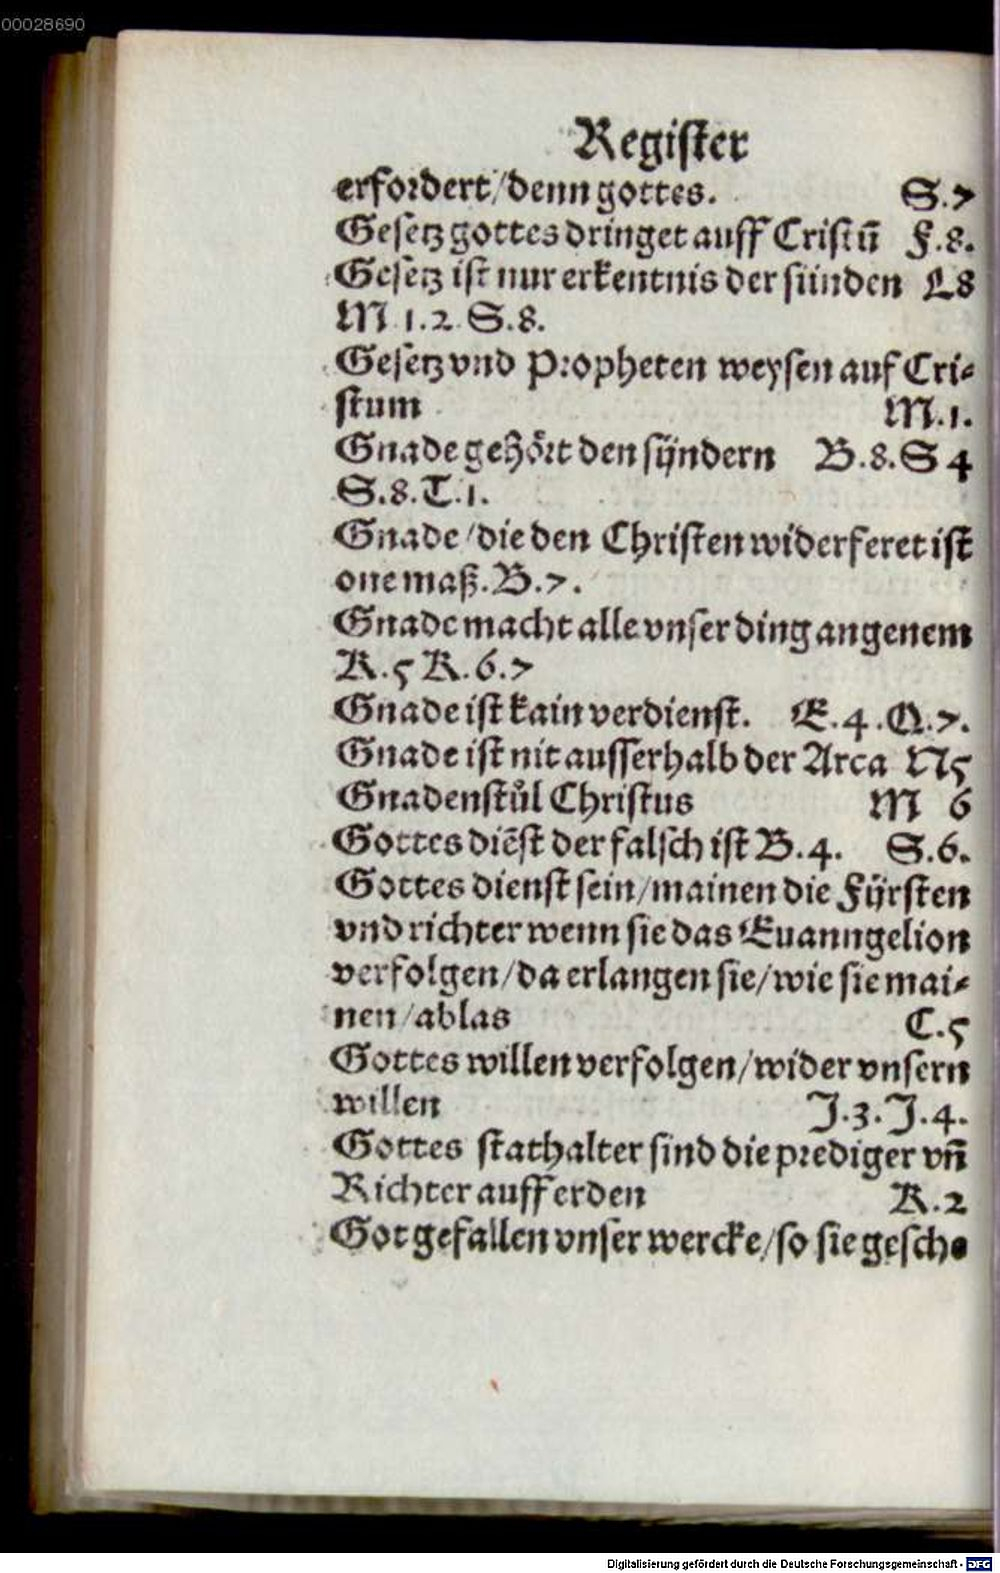 00028690
Register
erfordert/denn gottes. S.7
Gesetz gottes dringet auff Cristū F.8.
Gesetz ist nur erkentnis der sünden L8
M 1.2. S.8.
Gesetz vnd Propheten weysen auf Cri⸗
stum M.1.
Gnade gehört den sÿndern B.8.S 4
S.8.T.1.
Gnade/die den Christen widerferet ist
one maß.B.7.
Gnade macht alle vnser ding angenem
K.5 K.6.7
Gnade ist kain verdienst. E.4.Q.7.
Gnade ist nit ausserhalb der Arca N5
Gnadenstůl Christus M 6
Gottes diēst der falsch ist B.4. S.6.
Gottes dienst sein/mainen die Fÿrsten
vnd richter wenn sie das Euanngelion
verfolgen/da erlangen sie/wie sie mai⸗
nen/ablas C.5
Gottes willen verfolgen/wider vnsern
willen J.3.J.4.
Gottes stathalter sind die prediger vn̄
Richter auff erden K.2
Got gefallen vnser wercke/so sie gesche
Digitalisierung gefördert durch die Deutsche Forschungsgemeinschaft - DFG